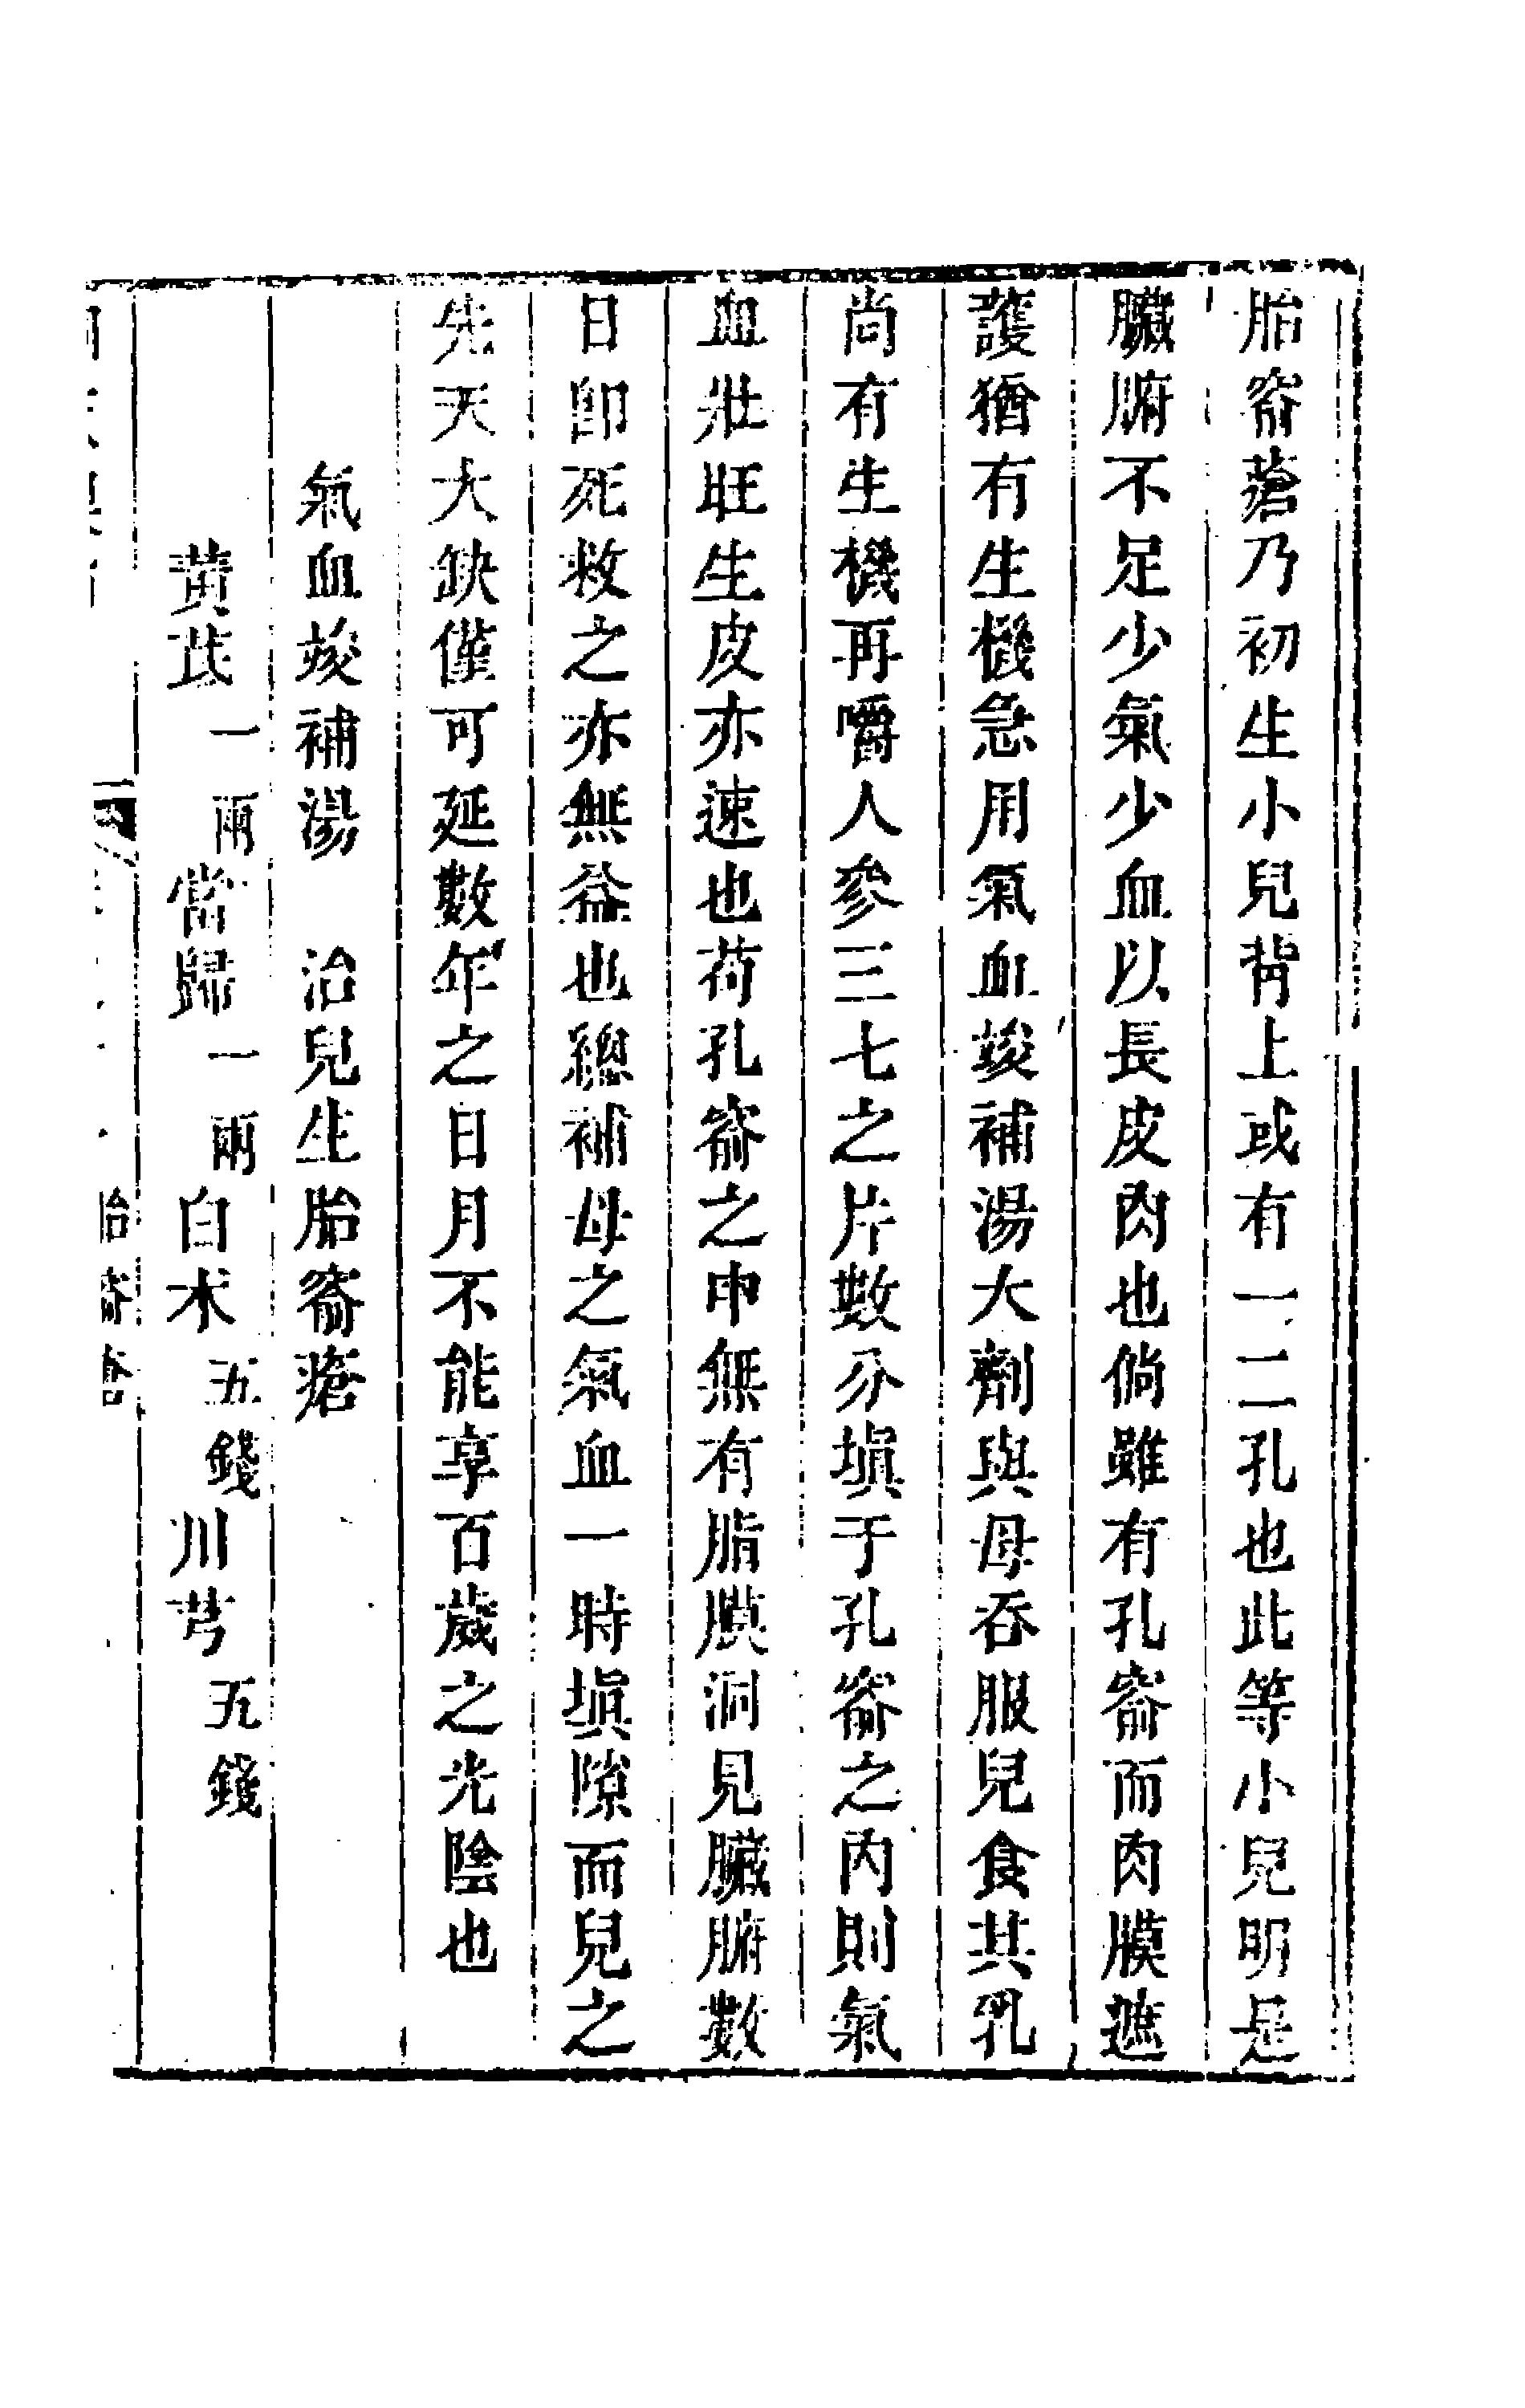 胎窬蒼乃初生小兒背上或有一二孔也此等小兒明是
臟腑不足少氣少血以長皮肉也倘雖有孔窬而肉膜遮
護猶有生機急用氣血竣補湯大劑與母吞服兒食其乳
尚有生機再嚼人參三七之片數分塡于孔窬之内則氣
血壯旺生皮亦速也荷孔窬之中無有脂膜洞見臟腑數
日卽死救之亦無益也總補母之氣血一時塡隙而兒之
先天大缺僅可延數年之日月不能享百歲之光陰也
氣血竣補湯　治兒生胎窬瘡
黃芪一兩　當歸一兩　白术五錢　川芎五錢
胎窬瘡